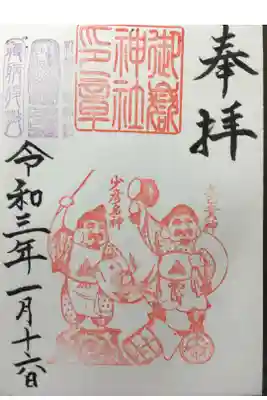 奉拝
御嶽
神社
印章
少彦名神
令和三年一月十六日